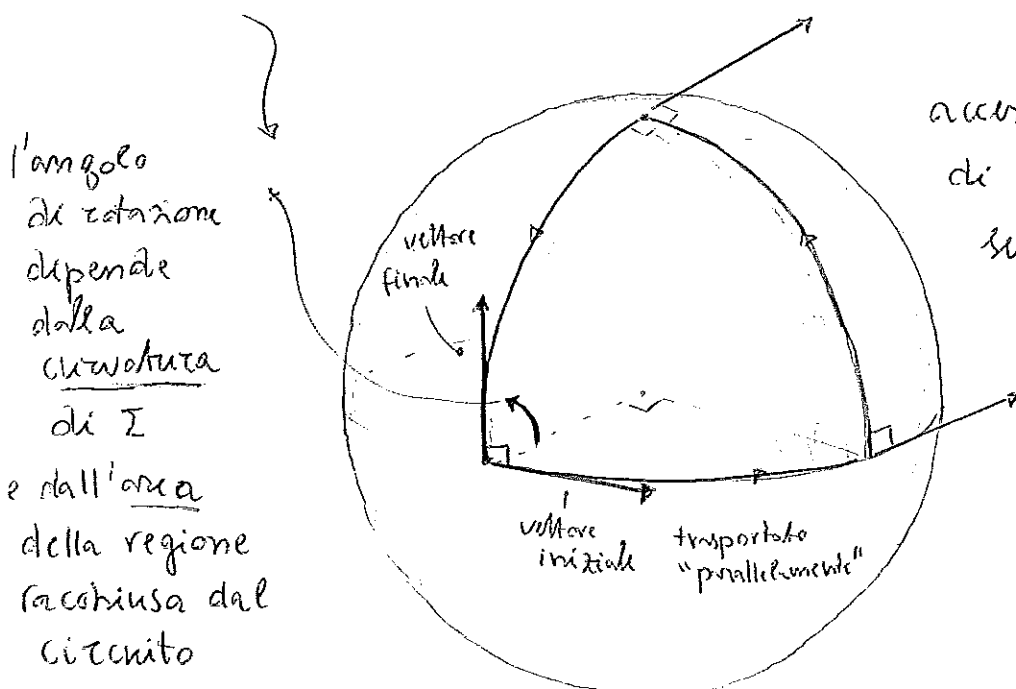 l'angolo
di rotazione
dipende
dalla
curvatura
di Σ
e dall'area
della regione
racchiusa dal
circuito
vettore
finale
vettore
iniziale
trasportato
"parallelamente"
di